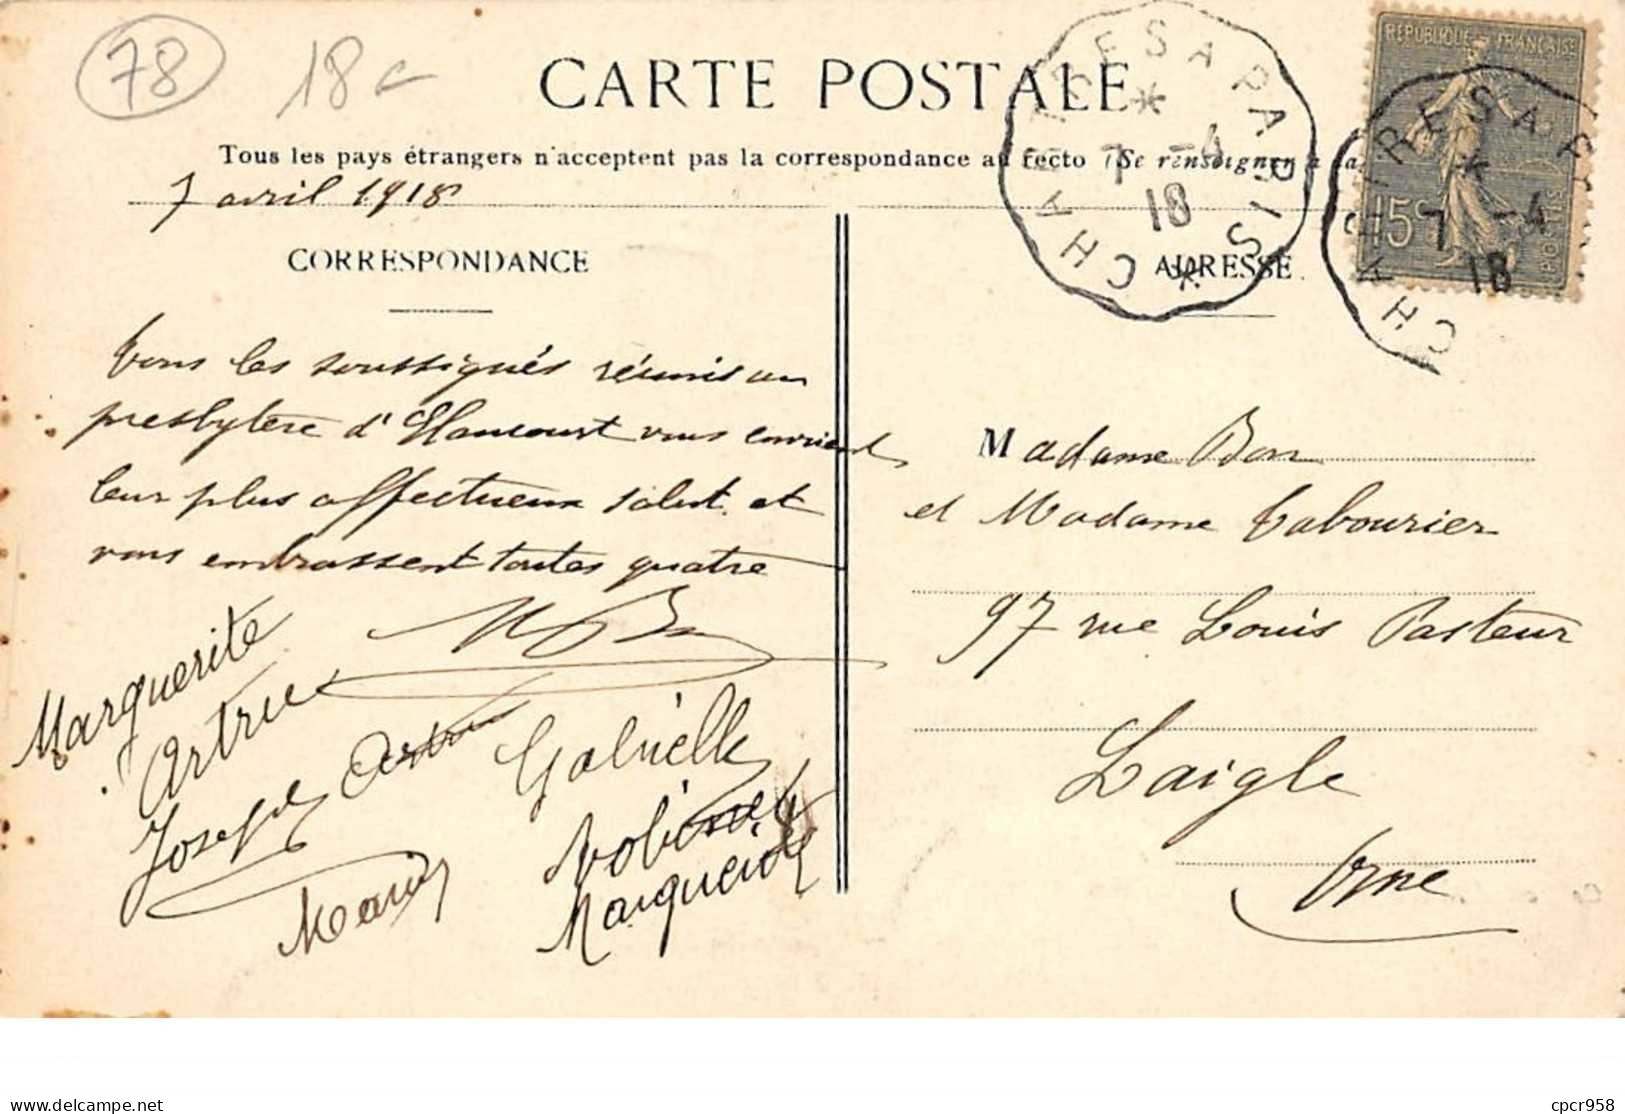 78
18
CARTE POSTALE
Tous les pays étrangers n'acceptent pas la correspondance au recto (Se renseigner à la
7 avril 1918
CORRESPONDANCE
ADRESSE
CHARTRES A PARIS
7 -4
18
RÉPUBLIQUE FRANÇAISE
15c
POSTES
CHARTRES A PA
7 -4
18
Tous les soussignés réunis au
presbytère d'Elancourt vous envoient
leur plus affectueux salut et
vous embrassent toutes quatre
Marguerite
Artru
Joseph Artru
Gabrielle
Marie
Marguerite
Madame Bon
et Madame Tabourier
97 rue Louis Pasteur
Laigle
Orne
delcampe.net
cpcr958